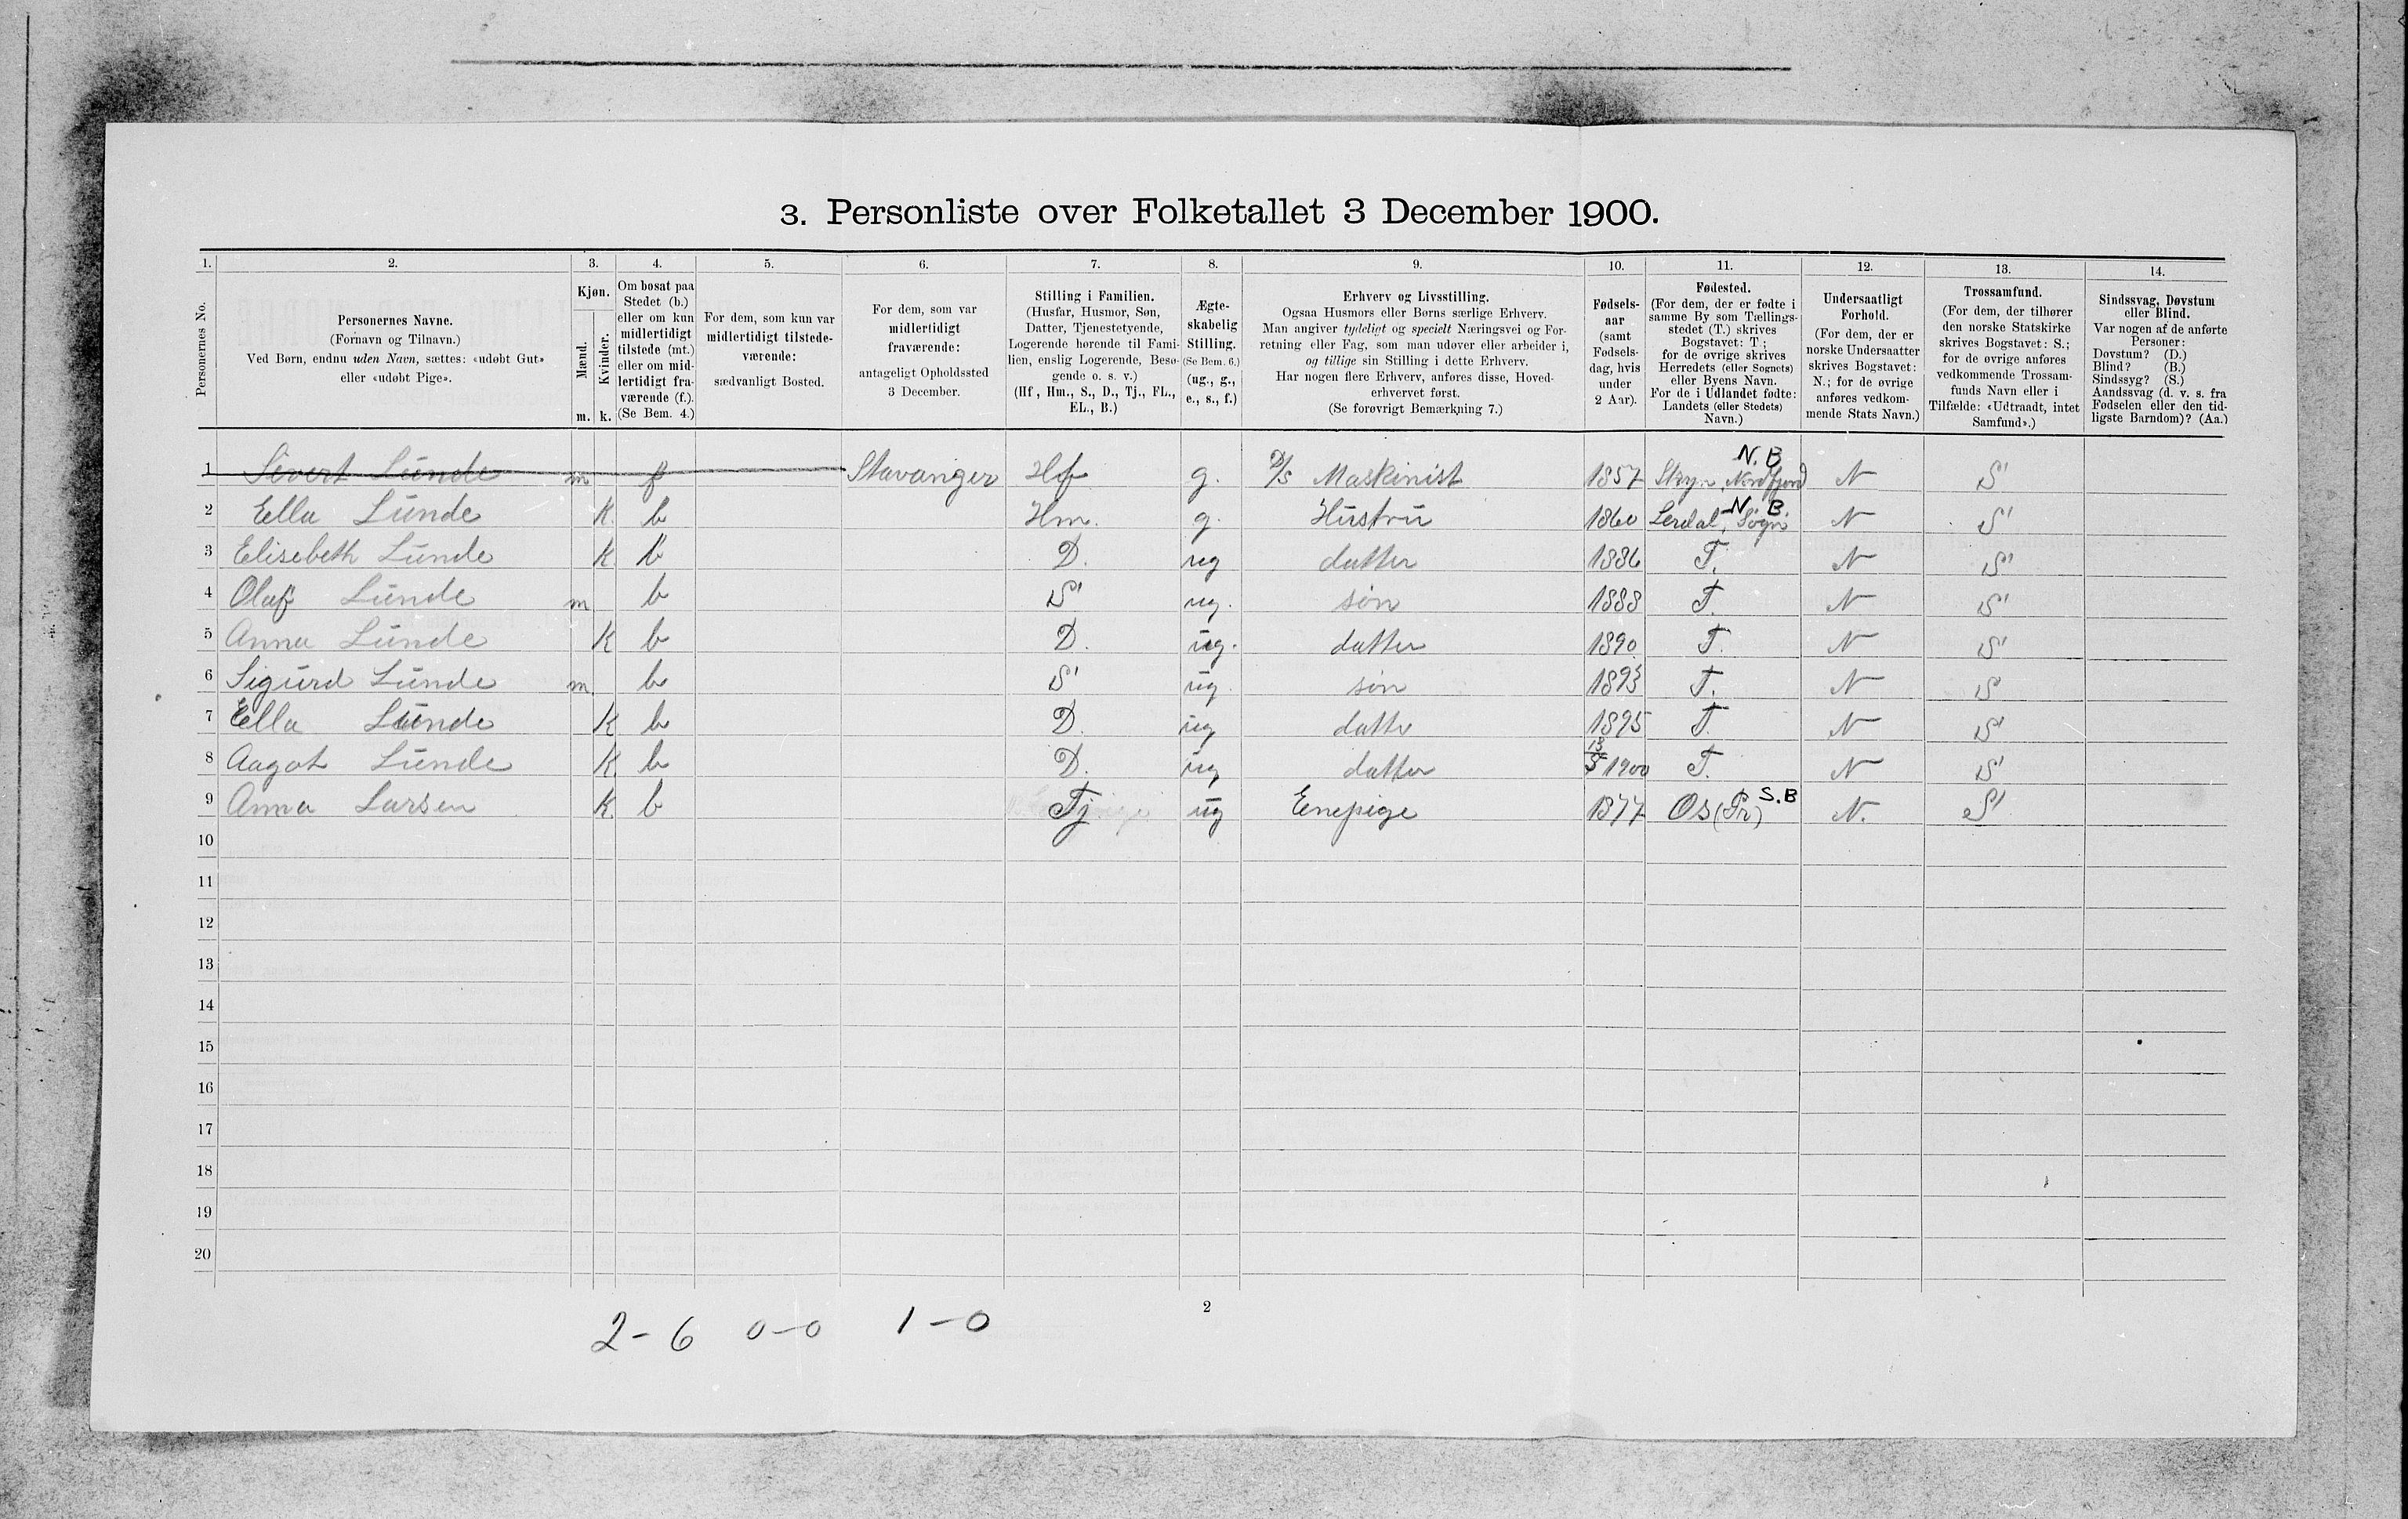 3. Personliste over Folketallet 3 December 1900.
1. 2. 3. 4. 5. 6. 7. 8. 9. 10. 11. 12. 13. 14.
Personernes No.
Personernes Navne.
(Fornavn og Tilnavn.)
Ved Børn, endnu uden Navn, sættes: «udøbt Gut»
eller «udøbt Pige».
Kjøn.
Mænd.
Kvinder.
m. k.
Om bosat paa
Stedet (b.)
eller om kun
midlertidigt
tilstede (mt.)
eller om mid-
lertidigt fra-
værende (f.).
(Se Bem. 4.)
For dem, som kun var
midlertidigt tilstede-
værende:
sædvanligt Bosted.
For dem, som var
midlertidigt
fraværende:
antageligt Opholdssted
3 December.
Stilling i Familien.
(Husfar, Husmor, Søn,
Datter, Tjenestetyende,
Logerende hørende til Fami-
lien, enslig Logerende, Besø-
gende o. s. v.)
(Hf., Hm., S., D., Tj., FL.,
EL., B.)
Ægte-
skabelig
Stilling.
(Se Bem. 6.)
(ug., g.,
e., s., f.)
Erhverv og Livsstilling.
Ogsaa Husmors eller Børns særlige Erhverv.
Man angiver tydeligt og specielt Næringsvei og For-
retning eller Fag, som man udøver eller arbeider i,
og tillige sin Stilling i dette Erhverv.
Har nogen flere Erhverv, anføres disse, Hoved-
erhvervet først.
(Se forøvrigt Bemærkning 7.)
Fødsels-
aar
(samt
Fødsels-
dag, hvis
under
2 Aar).
Fødested.
(For dem, der er fødte i
samme By som Tællings-
stedet (T.) skrives
Bogstavet: T.;
for de øvrige skrives
Herredets (eller Sognets)
eller Byens Navn.
For de i Udlandet fødte:
Landets (eller Stedets)
Navn.)
Undersaatligt
Forhold.
(For dem, der er
norske Undersaatter
skrives Bogstavet:
N.; for de øvrige
anføres vedkom-
mende Stats Navn.)
Trossamfund.
(For dem, der tilhører
den norske Statskirke
skrives Bogstavet: S.;
for de øvrige anføres
vedkommende Trossam-
funds Navn eller i
Tilfælde: «Udtraadt, intet
Samfund».)
Sindssvag, Døvstum
eller Blind.
Var nogen af de anførte
Personer:
Døvstum? (D.)
Blind? (B.)
Sindssyg? (S.)
Aandssvag (d. v. s. fra
Fødselen eller den tid-
ligste Barndom)? (Aa.)
1 Sivert Lunde m f Stavanger Hf g. D/S Maskinist 1857 Stryn, Nordfjord N.B N S
2 Ella Lunde K. b Hm. g. Hustru 1860 Lerdal, Sogn N.B. N S
3 Elisebeth Lunde K b D. ug datter 1886 T. N S
4 Olaf Lunde m b S ug. søn 1888 T. N S
5 Anna Lunde K b D. ug. datter 1890 T. N S
6 Sigurd Lunde m b S ug. søn 1893 T. N S
7 Ella Lunde K b D. ug datte 1895 T. N S
8 Aagot Lunde K. b D. ug datter 1900 T. N S
9 Anna Larsen K. b Tj ug Enepige 1877 Os (Pr) S.B N. S
10
11
12
13
14
15
16
17
18
19
20
2
2-6 0-0 1-0